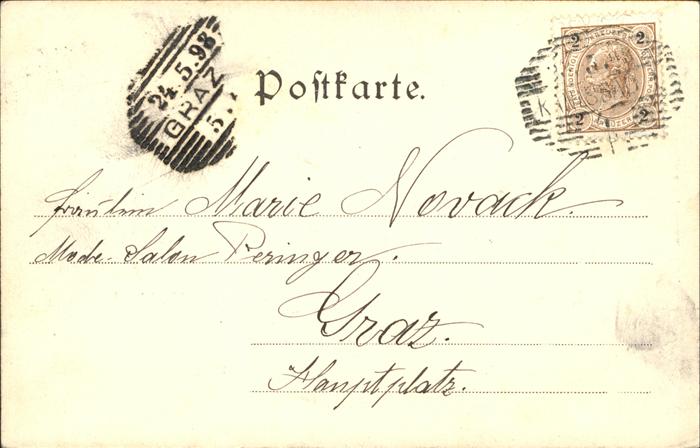 24.5.98
GRAZ
5.
Postkarte.
2 2
2 2
Fräulein Marie Novack.
Mode-Salon Peringer.
Graz.
Hauptplatz.